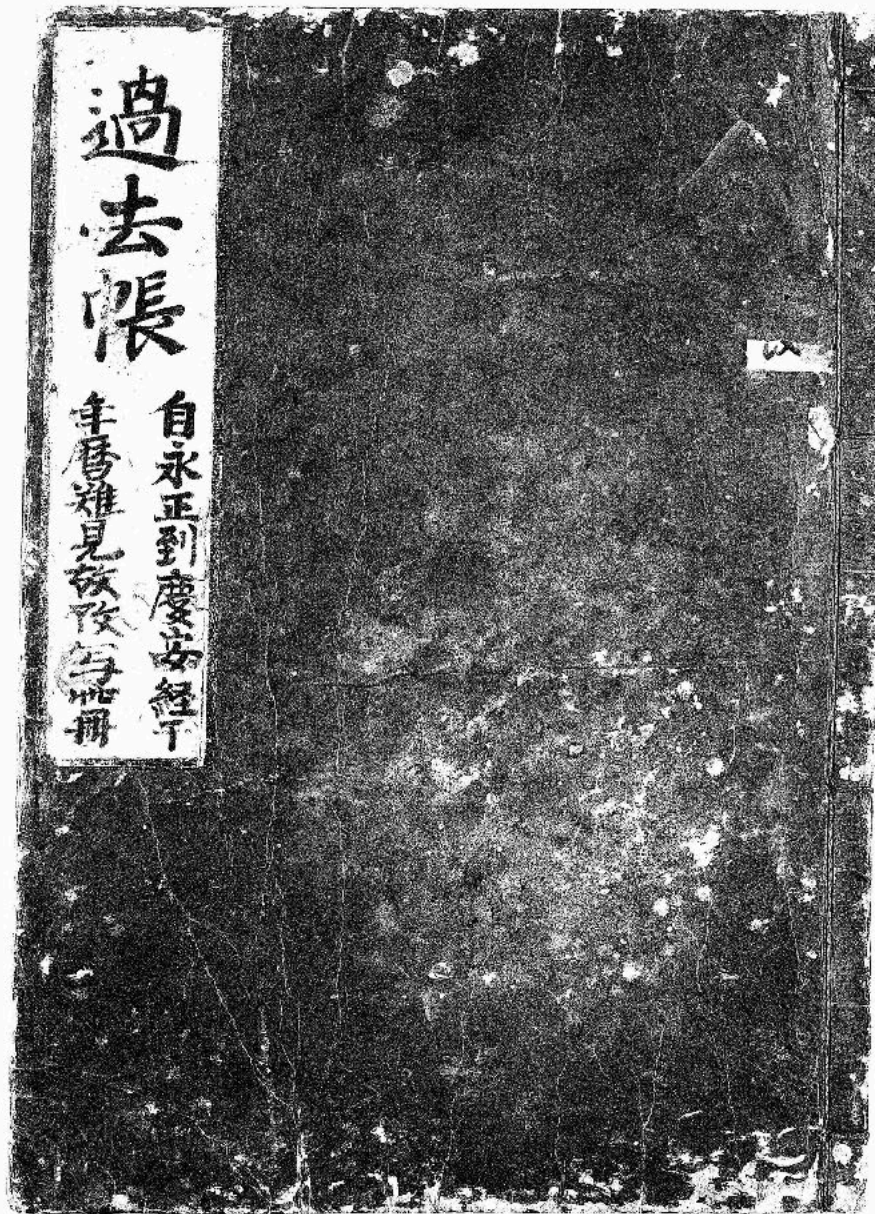 過去帳
自永正到慶安経下
年暦難見故改写此冊